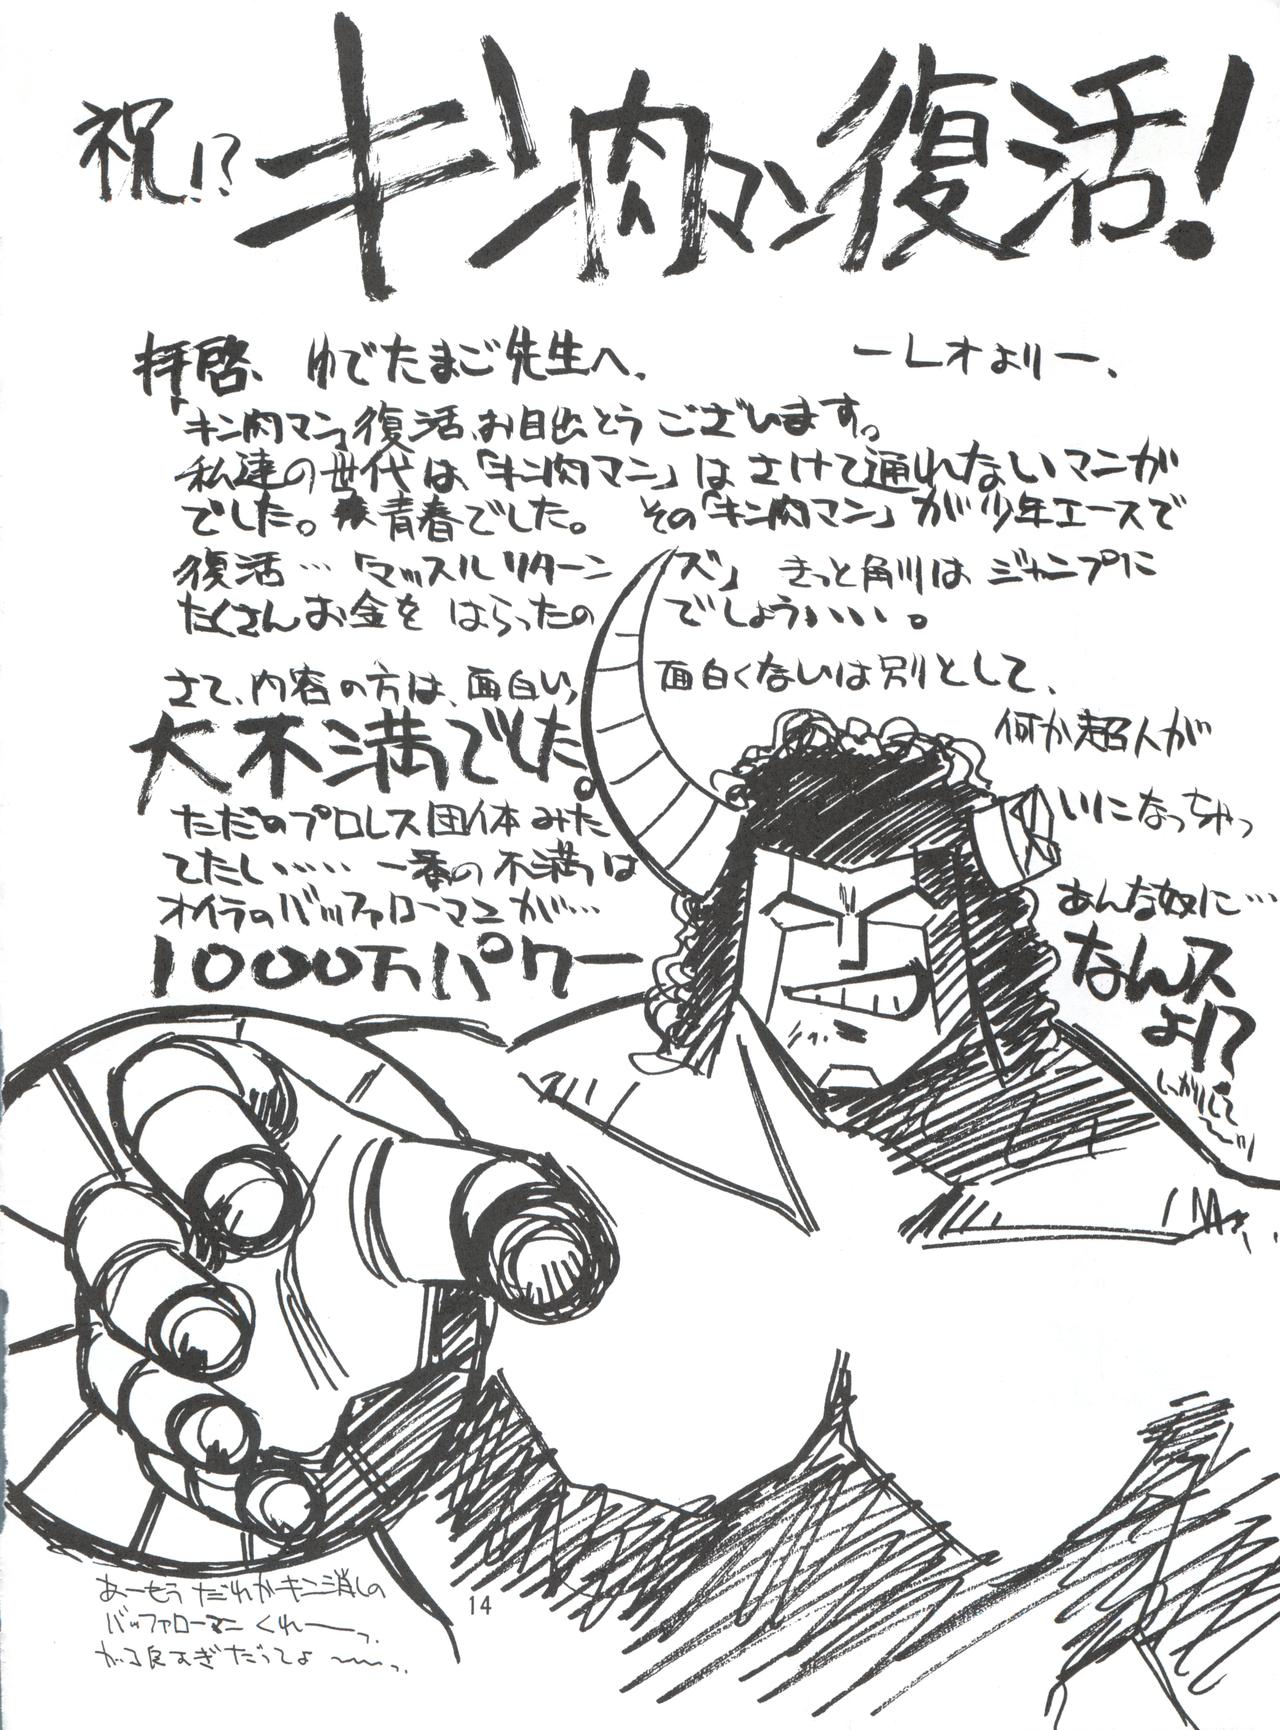 祝!? キン肉マン復活!
拝啓、ゆでたまご先生へ、 ーレオよりー、
「キン肉マン」復活、お目出とうございます。
私達の世代は、「キン肉マン」はさけて通れないマンガ
でした。青春でした。 その「キン肉マン」が少年エースで
復活…「マッスルリターンズ」 きっと角川はジャンプに
たくさんお金をはらったのでしょう、、、、。
さて、内容の方は、面白い、面白くないは別として、
大不満でした。 何か超人が
ただのプロレス団体みたいになっちゃっ
てたし…… 一番の不満は あんな奴に…
オイラのバッファローマンが…
1000万パワー なんスよ!?
しっかりして〜ッ
あーもう だれかキン消しの
バッファローマン くれーーっ、
14